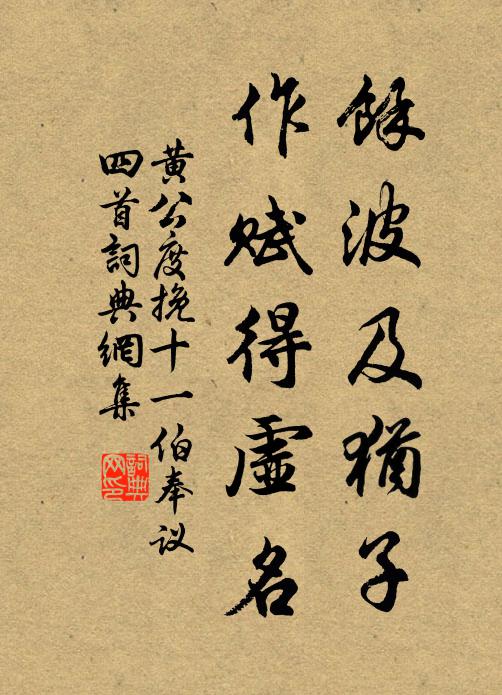 餘波及猶子
作賦得虛名
黄公度挽十一伯奉议
四首詞典網集
詞典网印